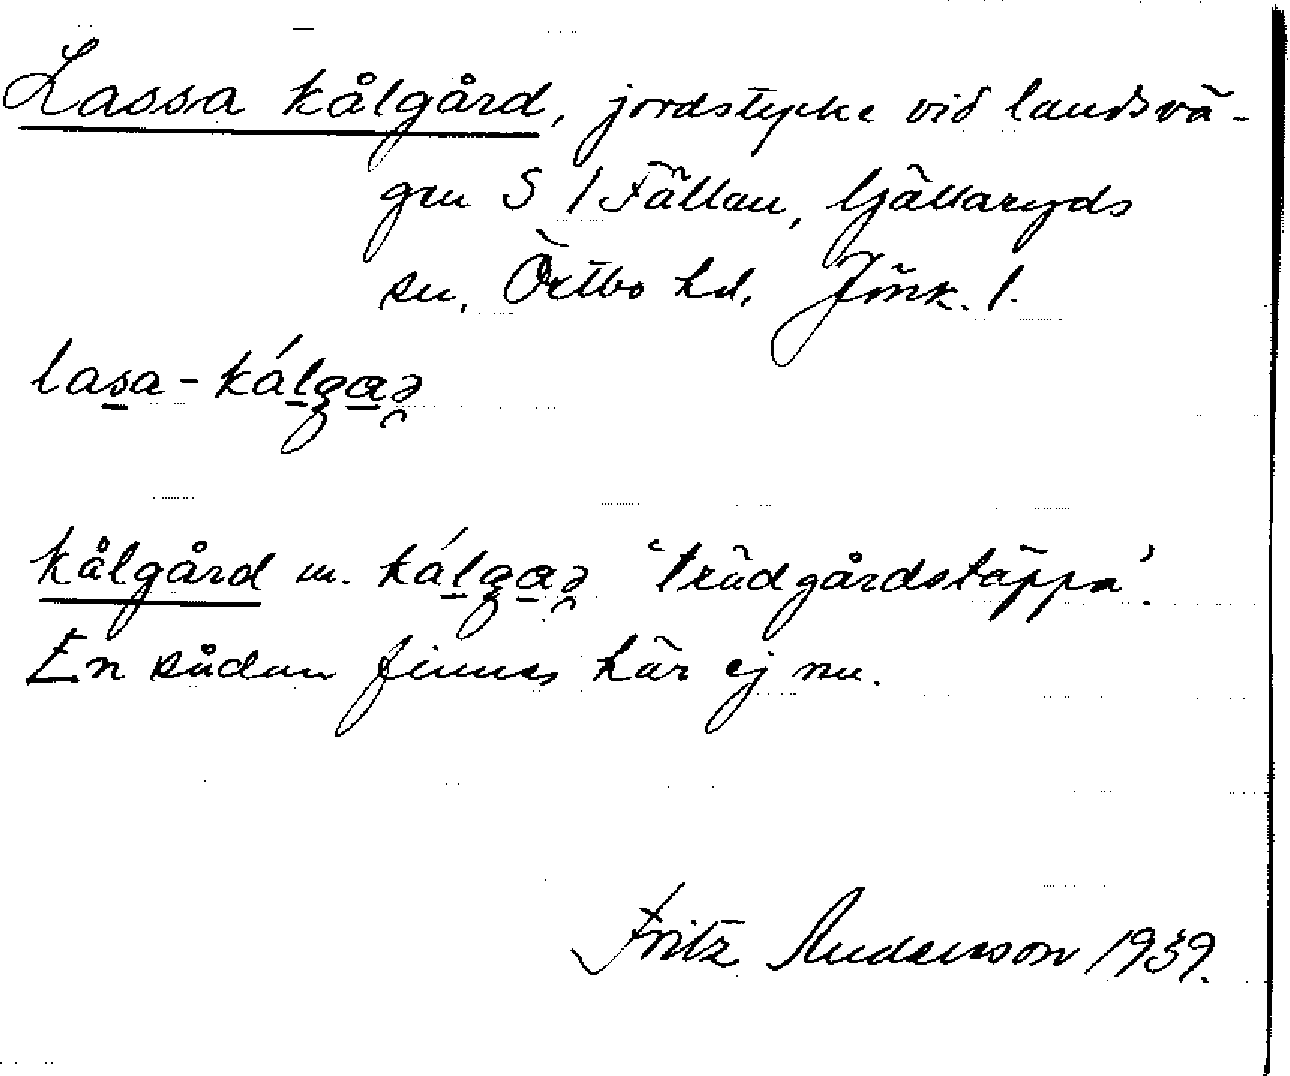 Lassa kålgård, jordstycke vid landsvä-
gen S / Fällan, Gällaryds
sn. Östbo hd. Jönk. l.
lasa - kálgaə
kålgård m. kálgaə 'trädgårdstäppa'.
En sådan finnes här ej nu.
Fritz Anderson 1939.